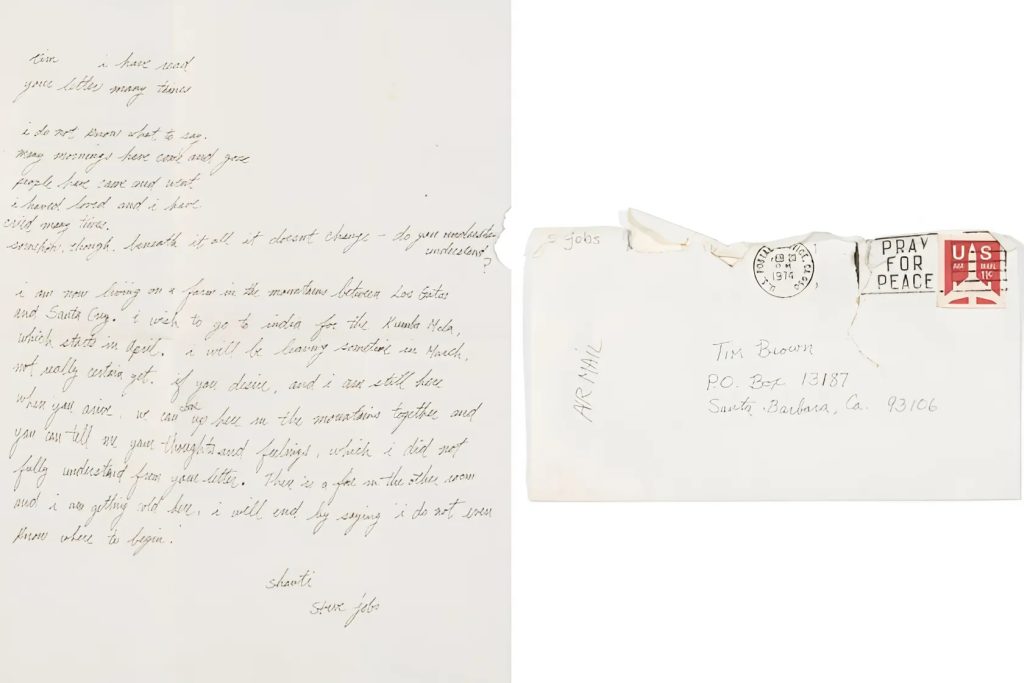 tim i have read
your letter many times
i do not know what to say.
many mornings have come and gone
people have came and went
i haved loved and i have
cried many times.
somehow, though, beneath it all it doesn't change - do you
understand?
i am now living on a farm in the mountains between Los Gatos
and Santa Cruz. i wish to go to india for the Kumba Mela,
which starts in April. i will be leaving sometime in March,
not really certain yet. if you desire, and i am still here
when you arive, we can come
up here in the mountains together and
you can tell me your thoughts and feelings, which i did not
fully understand from your letter. There is a fire in the other room
and i am getting cold here. i will end by saying i do not even
know where to begin.
shanti
steve jobs
s jobs
U.S. POSTAL SERVICE, CA
PM
1974
PRAY
FOR
PEACE
US
AIR MAIL
11¢
AIR MAIL
Tim Brown
P.O. Box 13187
Santa Barbara, Ca. 93106